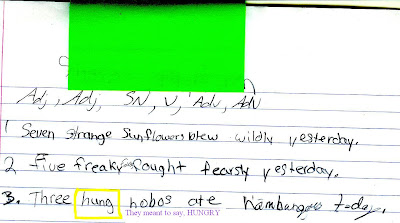 Adj, Adj, SN, V, Adv, Adv
1 Seven strange Sunflowers blew wildly yesterday.
2 five freaky fought fearsly yesterday.
3. Three hung hobos ate hamburgers today.
They meant to say, HUNGRY